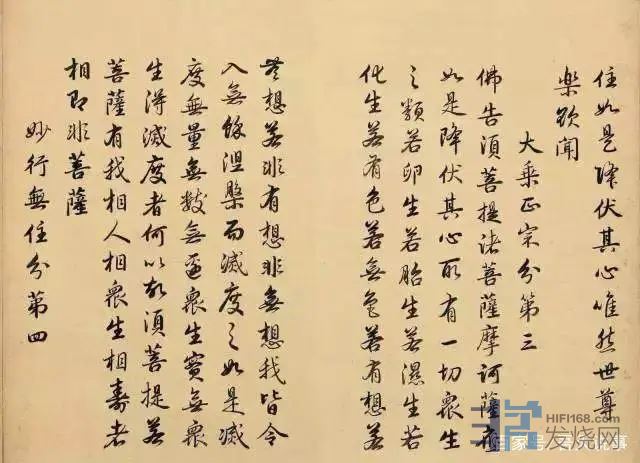 住如是降伏其心唯然世尊
樂欲聞
大乘正宗分第三
佛告須菩提諸菩薩摩訶薩應
如是降伏其心所有一切衆生
之類若卵生若胎生若濕生若
化生若有色若無色若有想若
無想若非有想非無想我皆令
入無餘涅槃而滅度之如是滅
度無量無數無邊衆生實無衆
生得滅度者何以故須菩提若
菩薩有我相人相衆生相壽者
相即非菩薩
妙行無住分第四
HIFI168.com
发烧网